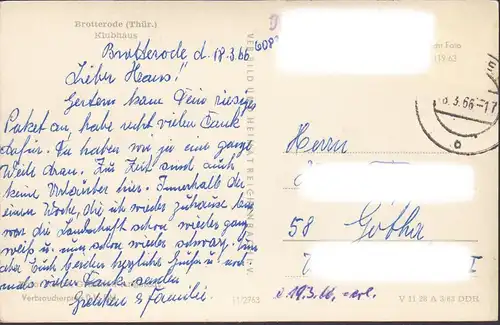 Brotterode (Thür.)
Klubhaus
Brotterode d. 18.3.66
Lieber Hans!
Gestern kam Dein riesiges
Paket an, habe recht vielen Dank
dafür. Da haben wir ja eine ganze
Weile dran. Zur Zeit sind auch
keine Urlauber hier. Innerhalb der
einen Woche, die ich wieder zuhause bin
war die Landschaft schon wieder ganz
weiß u. nun schon wieder schwarz. Dir
Euch beiden herzliche Grüße u. noch
mals vielen Dank senden
Gretchen & Familie.
Verbraucherpreis
I 12763
Foto
Herrn
58 Gotha
3.66-17
V 11 28 A 3/63 DDR
19.3.66. erl.